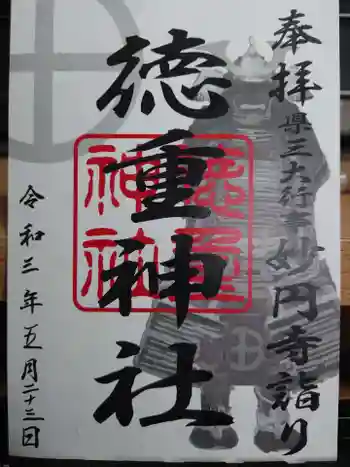 奉拝
県三大行事妙円寺詣り
徳重神社
徳重神社
令和三年五月二十三日